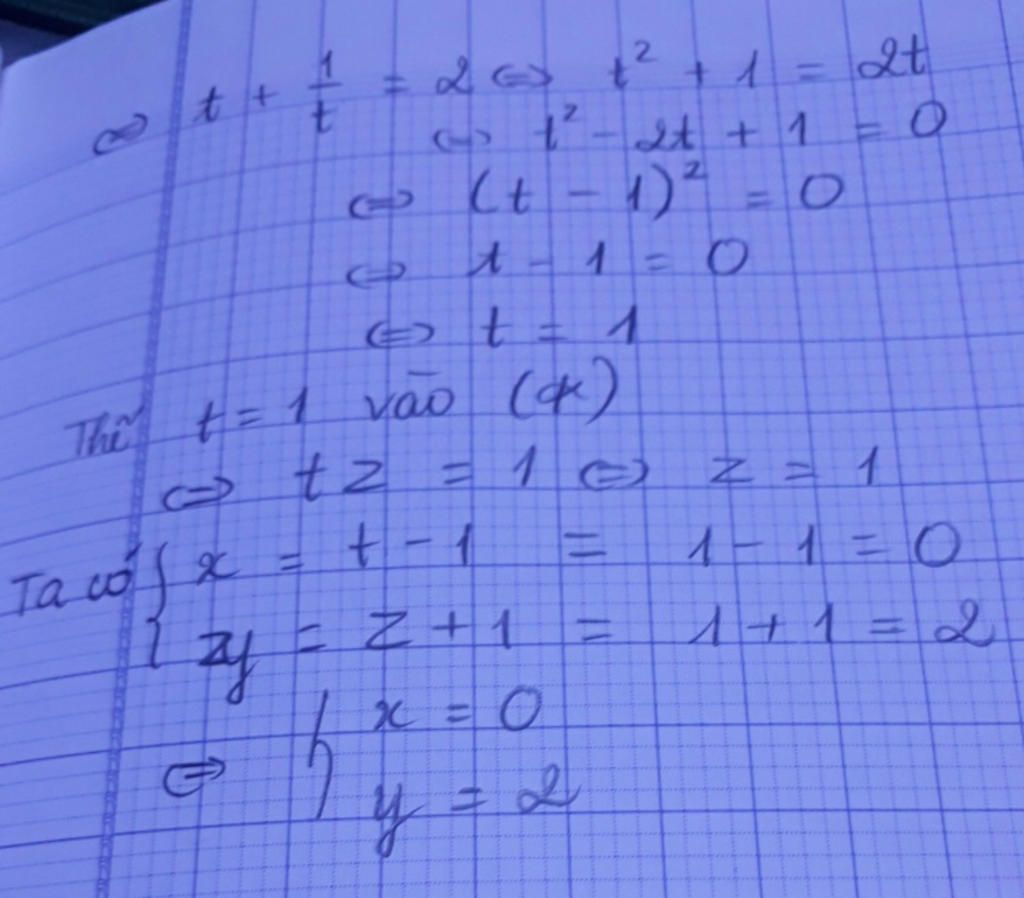 ⇔ t + 1/t = 2 ⇔ t² + 1 = 2t
⇔ t² - 2t + 1 = 0
⇔ (t - 1)² = 0
⇔ t - 1 = 0
⇔ t = 1
t = 1 vào (*)
⇔ tz = 1 ⇔ z = 1
Ta có { x = t - 1 = 1 - 1 = 0
y = z + 1 = 1 + 1 = 2
⇔ { x = 0
y = 2